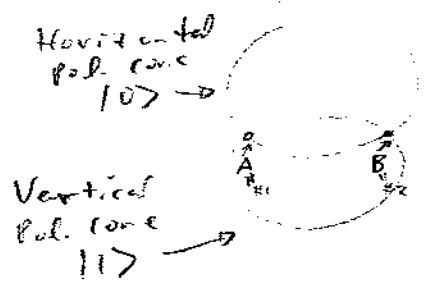 Horizontal
pol. cone
|0>
A
#1
B
#2
Vertical
pol. cone
|1>